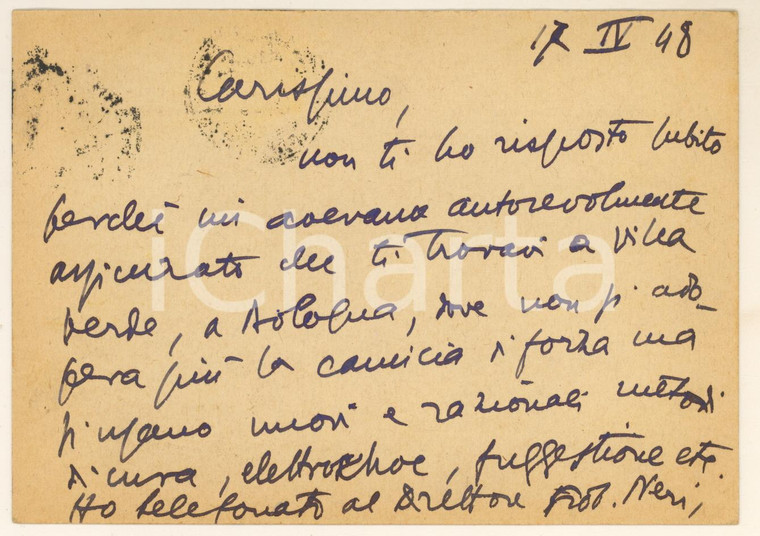 17 IV 48
Carissimo,
non ti ho risposto subito
perché mi avevano autorevolmente
assicurato che ti trovavi a villa
verde, a Bologna, dove non si ado-
pera più la camicia di forza ma
si usano nuovi e razionali metodi
di cura, elettrochoc, suggestione etc.
Ho telefonato al Direttore Prof. Neri,
iCharta